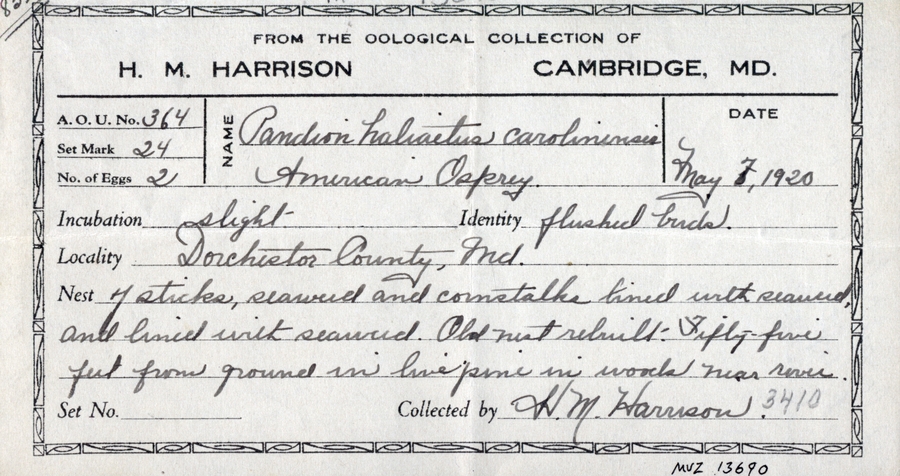 FROM THE OOLOGICAL COLLECTION OF
H. M. HARRISON CAMBRIDGE, MD.
A. O. U. No. 364
Set Mark 24
No. of Eggs 2
NAME Pandion haliaetus carolinensis
American Osprey.
DATE
May 7, 1920
Incubation slight Identity flushed birds.
Locality Dorchester County, Md.
Nest of sticks, seaweed and cornstalks lined with seaweed,
and lined with seaweed. Old nest rebuilt. Fifty-five
feet from ground in live pine in woods near river.
Set No. Collected by H. M. Harrison. 3410
MVZ 13690